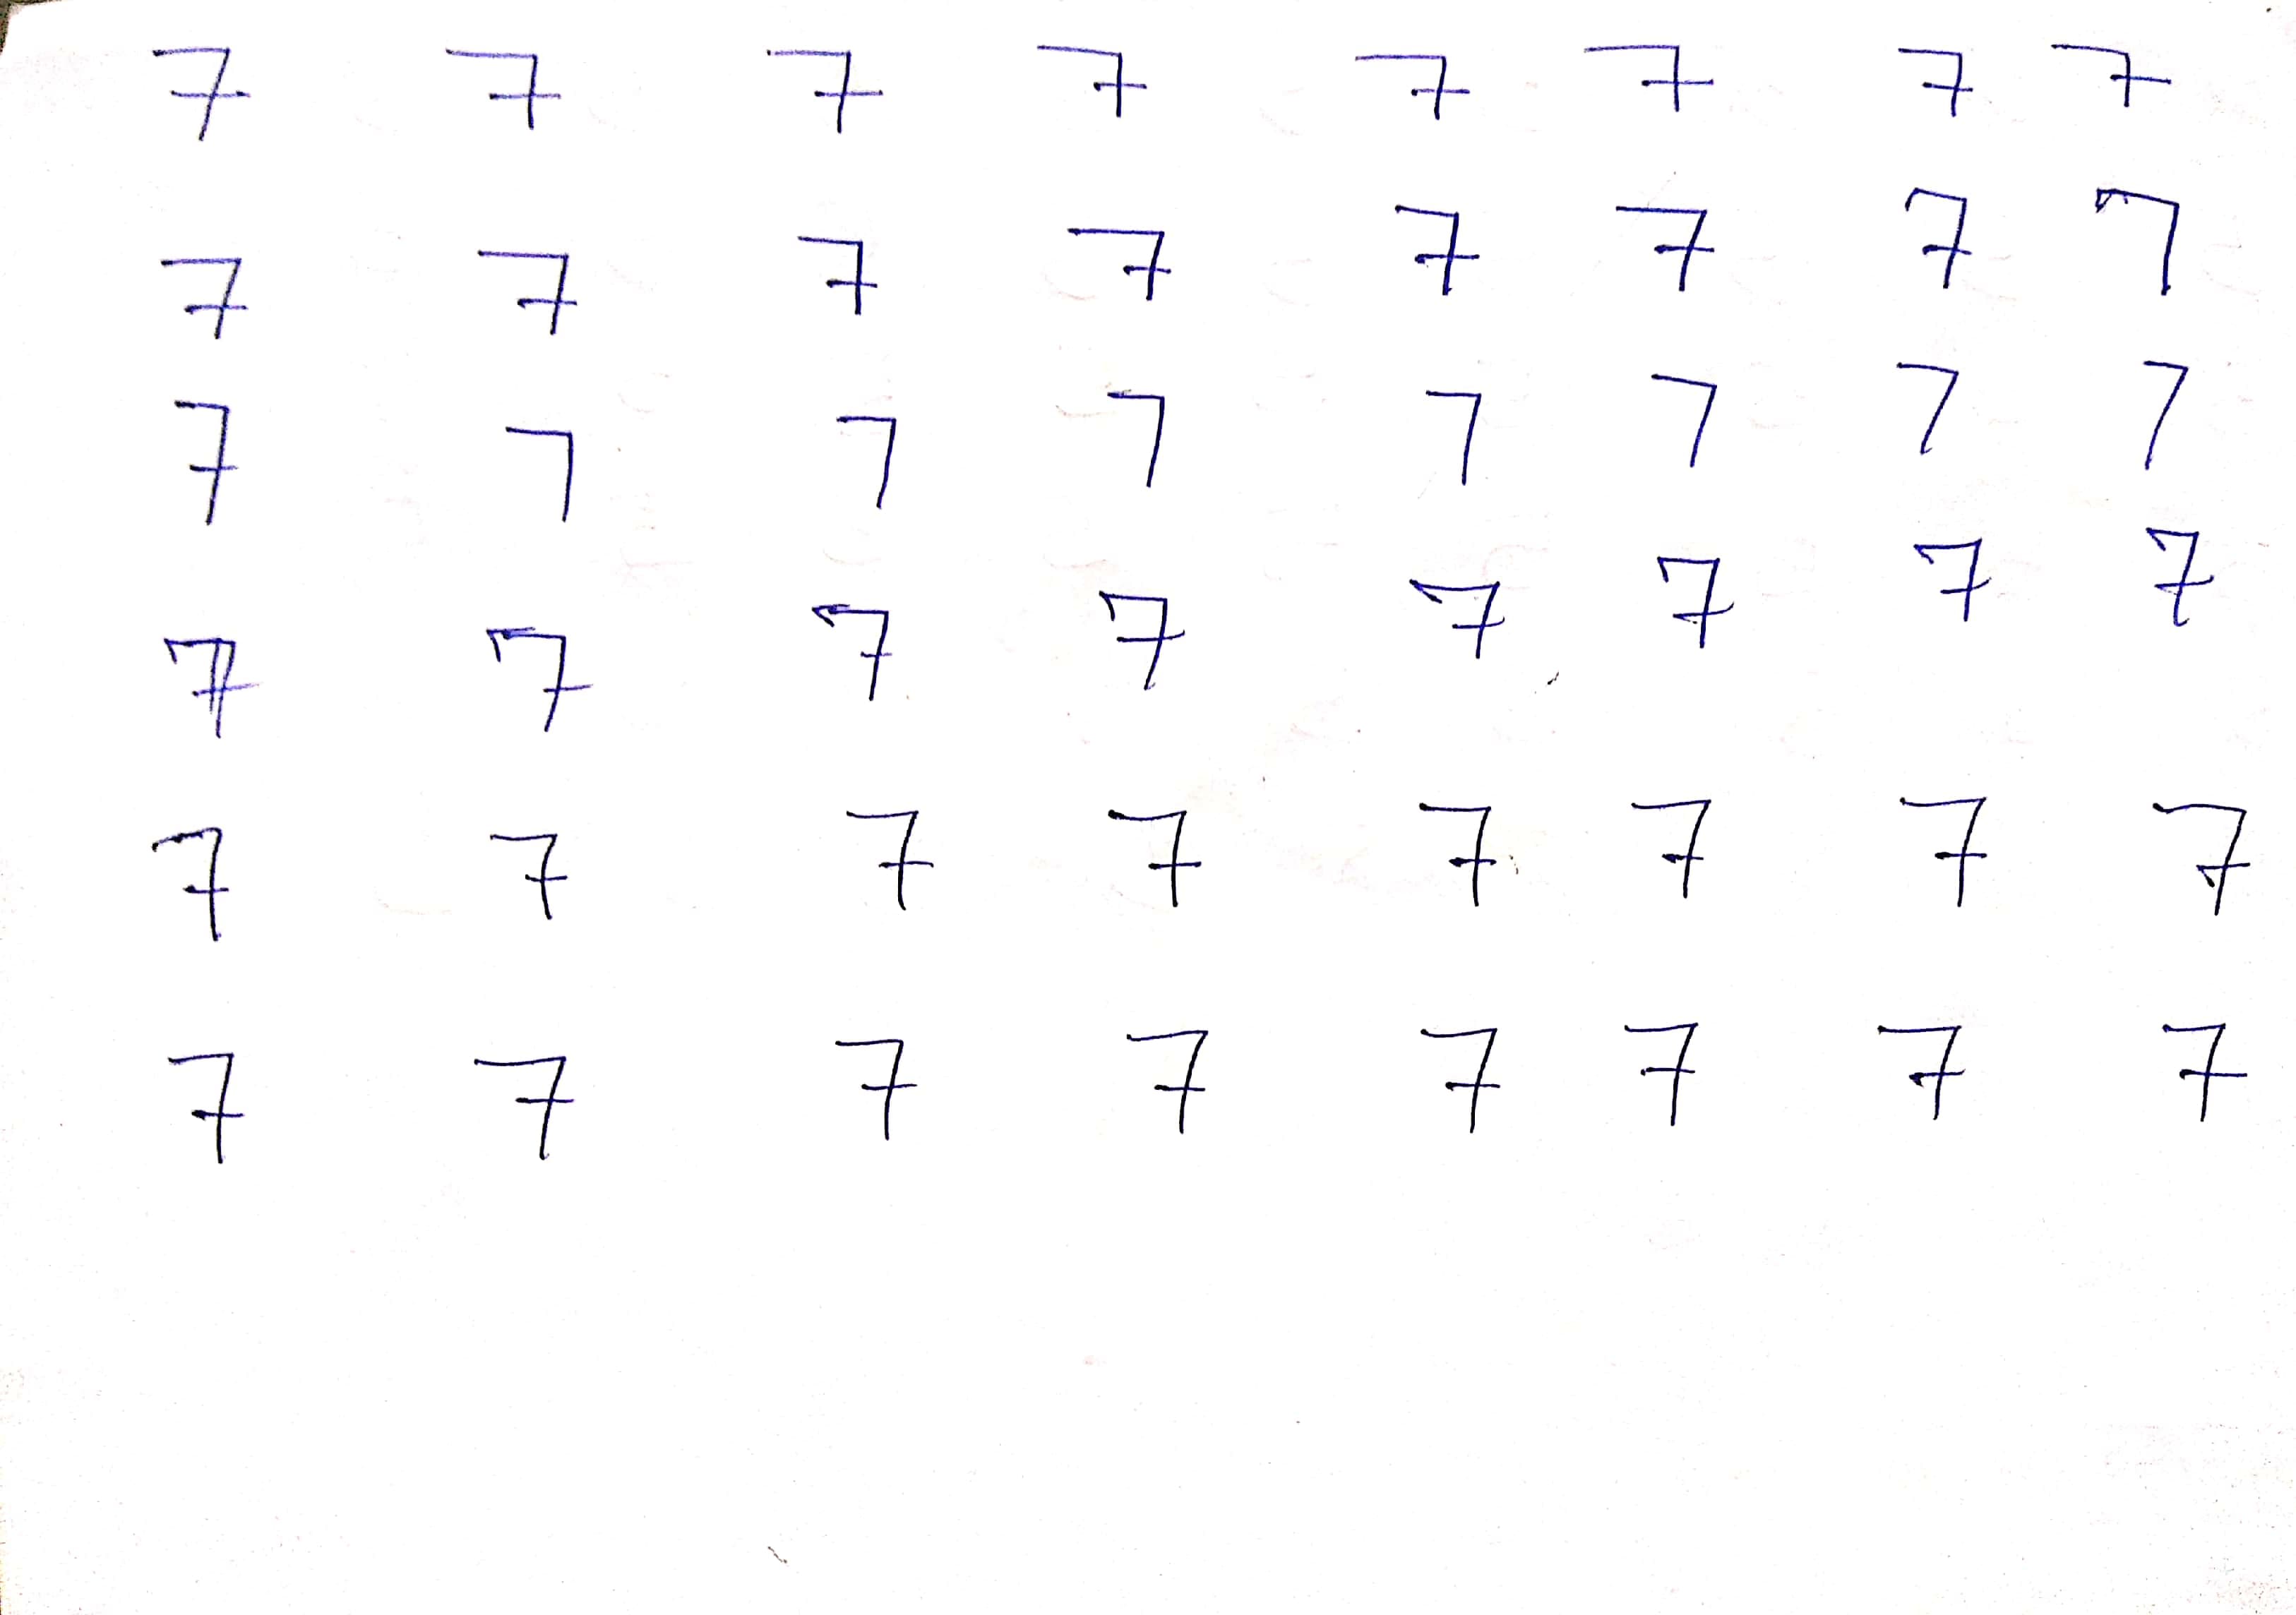 7 7 7 7 7 7 7 7
7 7 7 7 7 7 7 7
7 7 7 7 7 7 7 7
7 7 7 7 7 7 7 7
7 7 7 7 7 7 7 7
7 7 7 7 7 7 7 7